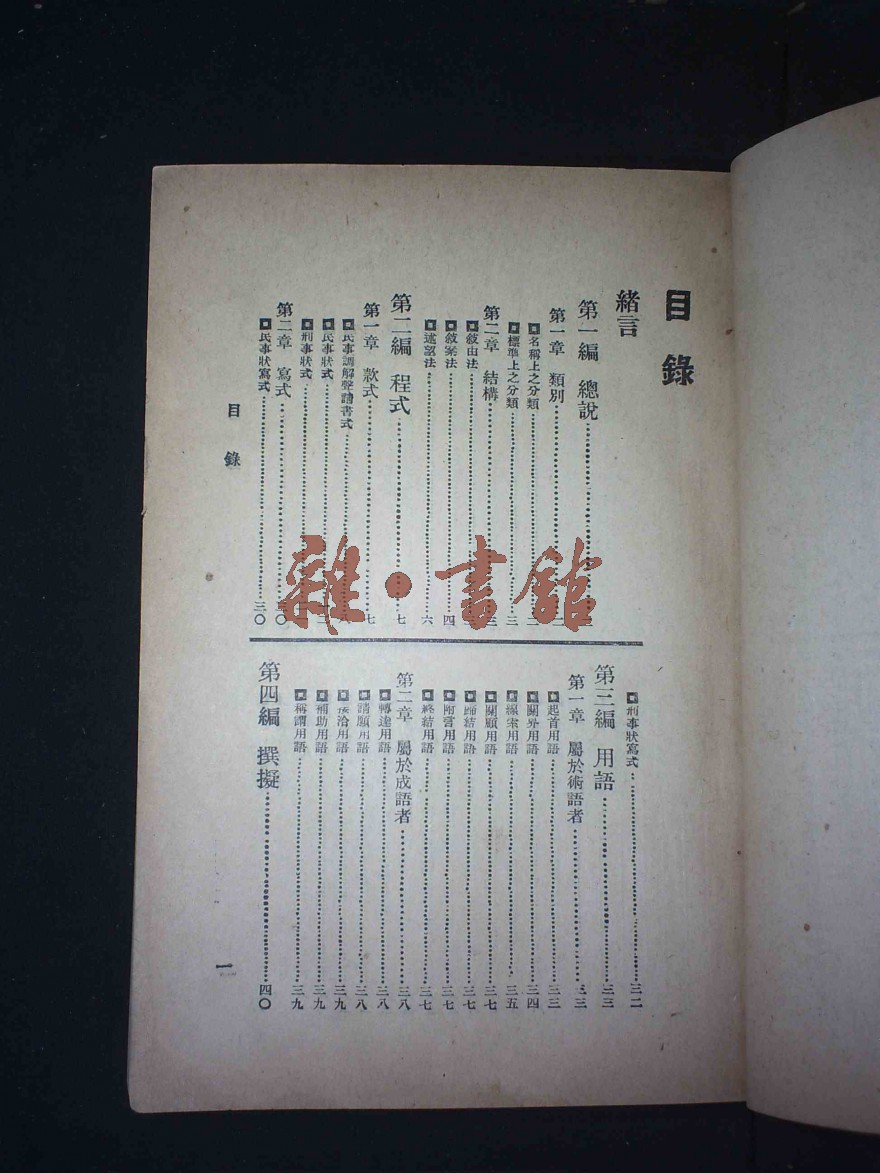 目錄
緒言
第一編 總說
第一章 類別
名稱上之分類
標準上之分類 三
第二章 結構 三
敘由法
敘案法 四
述認法 六
第二編 程式 七
第一章 款式 七
民事調解聲請書式 八
民事狀式
刑事狀式
第二章 寫式
民事狀寫式 三〇
刑事狀寫式 三二
第三編 用語 三三
第一章 屬於術語者 三三
起首用語 三三
關界用語 三四
線案用語 三五
關顧用語 三七
歸結用語 三七
附言用語 三七
終結用語 三七
第二章 屬於成語者 三八
轉達用語 三八
請願用語 三八
接洽用語 三九
補助用語 三九
稱謂用語 三九
第四編 撰擬 四〇
目錄
一
雜·書館